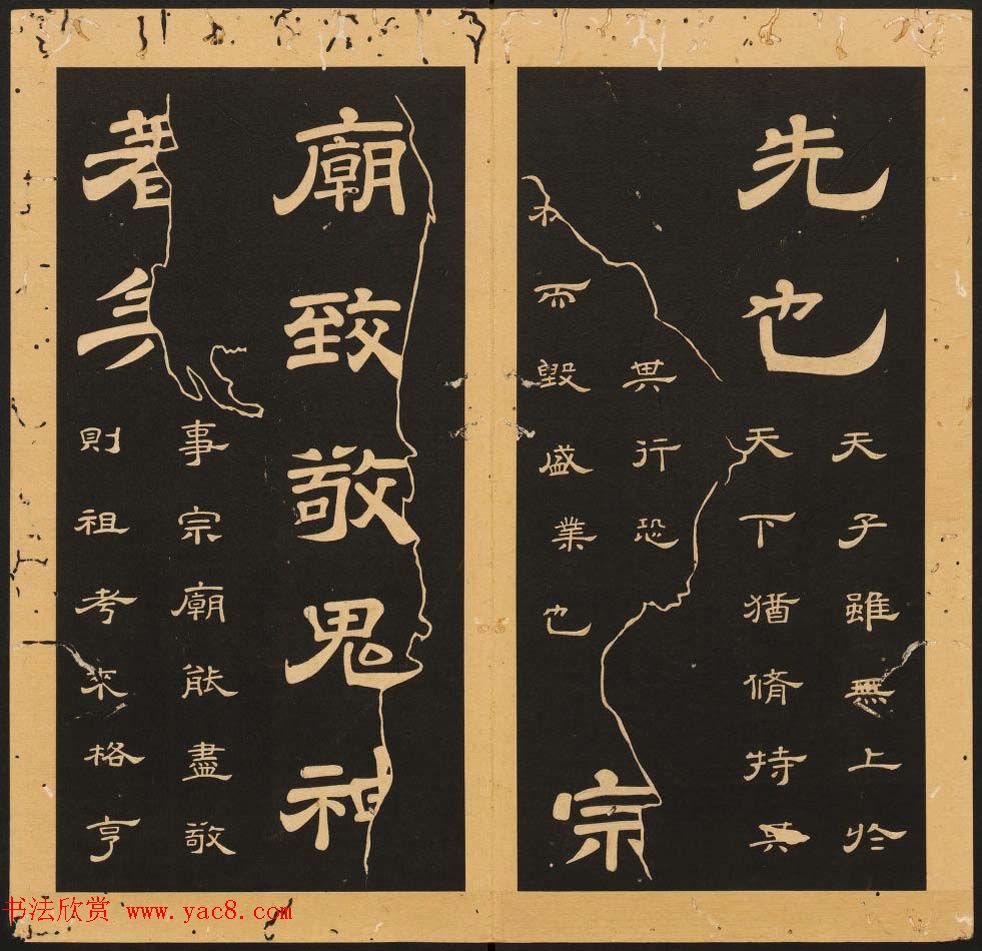 先也
天子雖無上於
天下猶脩持其
其行恐
而毀盛業也
宗
廟致敬鬼神
者矣
事宗廟能盡敬
則祖考來格亨
书法欣赏 www.yac8.com